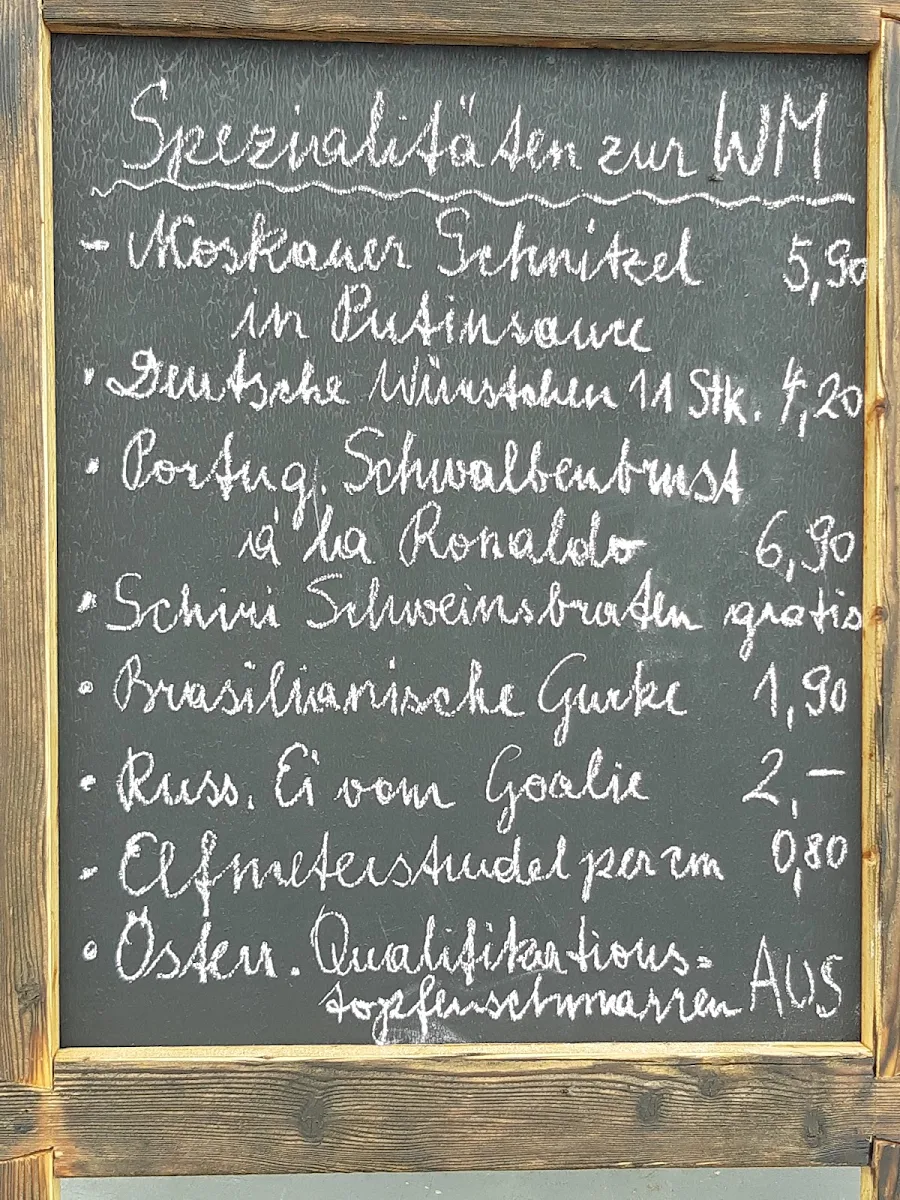 Spezialitäten zur WM
- Moskauer Schnitzel 5,90
in Putinsauce
• Deutsche Würstchen 11 Stk. 4,20
• Portug. Schwalbenbrust
á la Ronaldo 6,90
• Schiri Schweinsbraten gratis
• Brasilianische Gurke 1,90
• Russ. Ei vom Goalie 2,-
- Elfmeterstrudel per cm 0,80
• Österr. Qualifikations-
topfenschmarren AUS